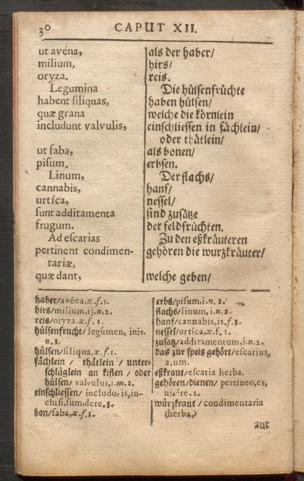 30 CAPUT XII.
ut avéna,
milium,
oryza.
Legumina
habent siliquas,
quæ grana
includunt valvulis,
ut faba,
pisum.
Linum,
cannabis,
urtíca,
sunt additamenta
frugum.
Ad escarias
pertinent condimen-
tariæ,
quæ dant,
als der haber/
hirs/
reis.
Die hülsenfrüchte
haben hülsen/
welche die körnlein
einschliessen in fächlein/
oder thätlein/
als bonen/
erbsen.
Der flachs/
hanf/
nessel/
sind zusätze
der feldfrüchten.
Zu den eßkräuteren
gehören die wurzkräuter/
welche geben/
haber/avéna,æ.f.1.
hirs/milium,ij.n.2.
reis/oryza æ.f.1.
hülsenfrucht/legumen, inis.
n.3.
hülsen/siliqua,æ.f.1.
fächlein / thätlein / unter-
schläglein an kisten / oder
hülsen/valvulus,i.m.2.
einschliessen/includo,is,in-
clusi,sum,dere,3.
bon/faba,æ.f.1.
erbs/pisum,i.n.2.
flachs/linum,i.n.2.
hanf/cannabis,is.f.3.
nessel/urtíca,æ.f.1.
zusatz/additamentum,i.n.2.
das zur speis gehört/escarius,
a,um.
eßkraut/escaria herba.
gehören/dienen/pertineo,es,
ui,ére.2.
würzkraut / condimentaria
(herba.)
aus